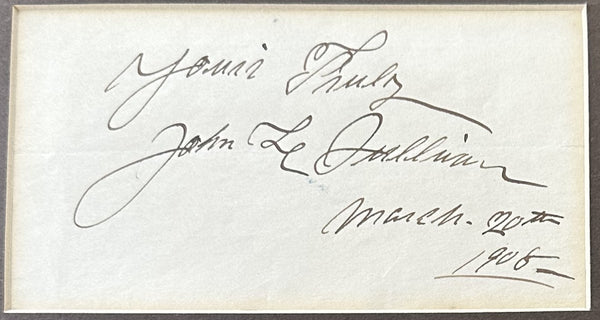 Yours Truly
John L Sullivan
March. 20th
1908